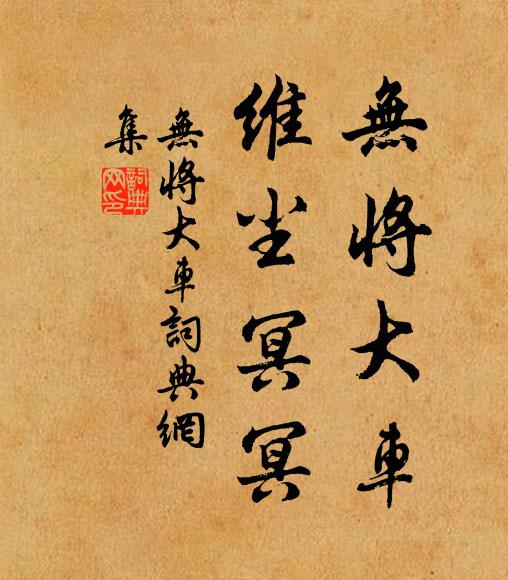 無將大車
維尘冥冥
無將大車詞典網
集
詞典
网印